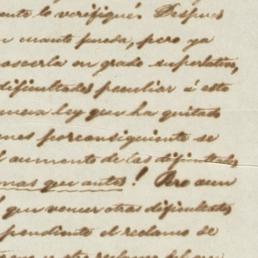 nte lo verifiqué. Despues
n cuanto pueda, pero ya
noscerla en grado superlativo,
dificultades peculiar á este
nueva ley que ha quitado
nes por consiguiente se
l aumento de las dificultades
mas que antes! Pero aun
que vencer otras dificultades
pendiente el reclamo de